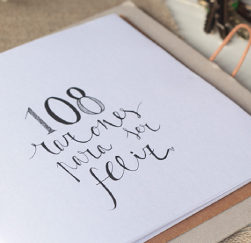 108
razones
para ser
feliz.